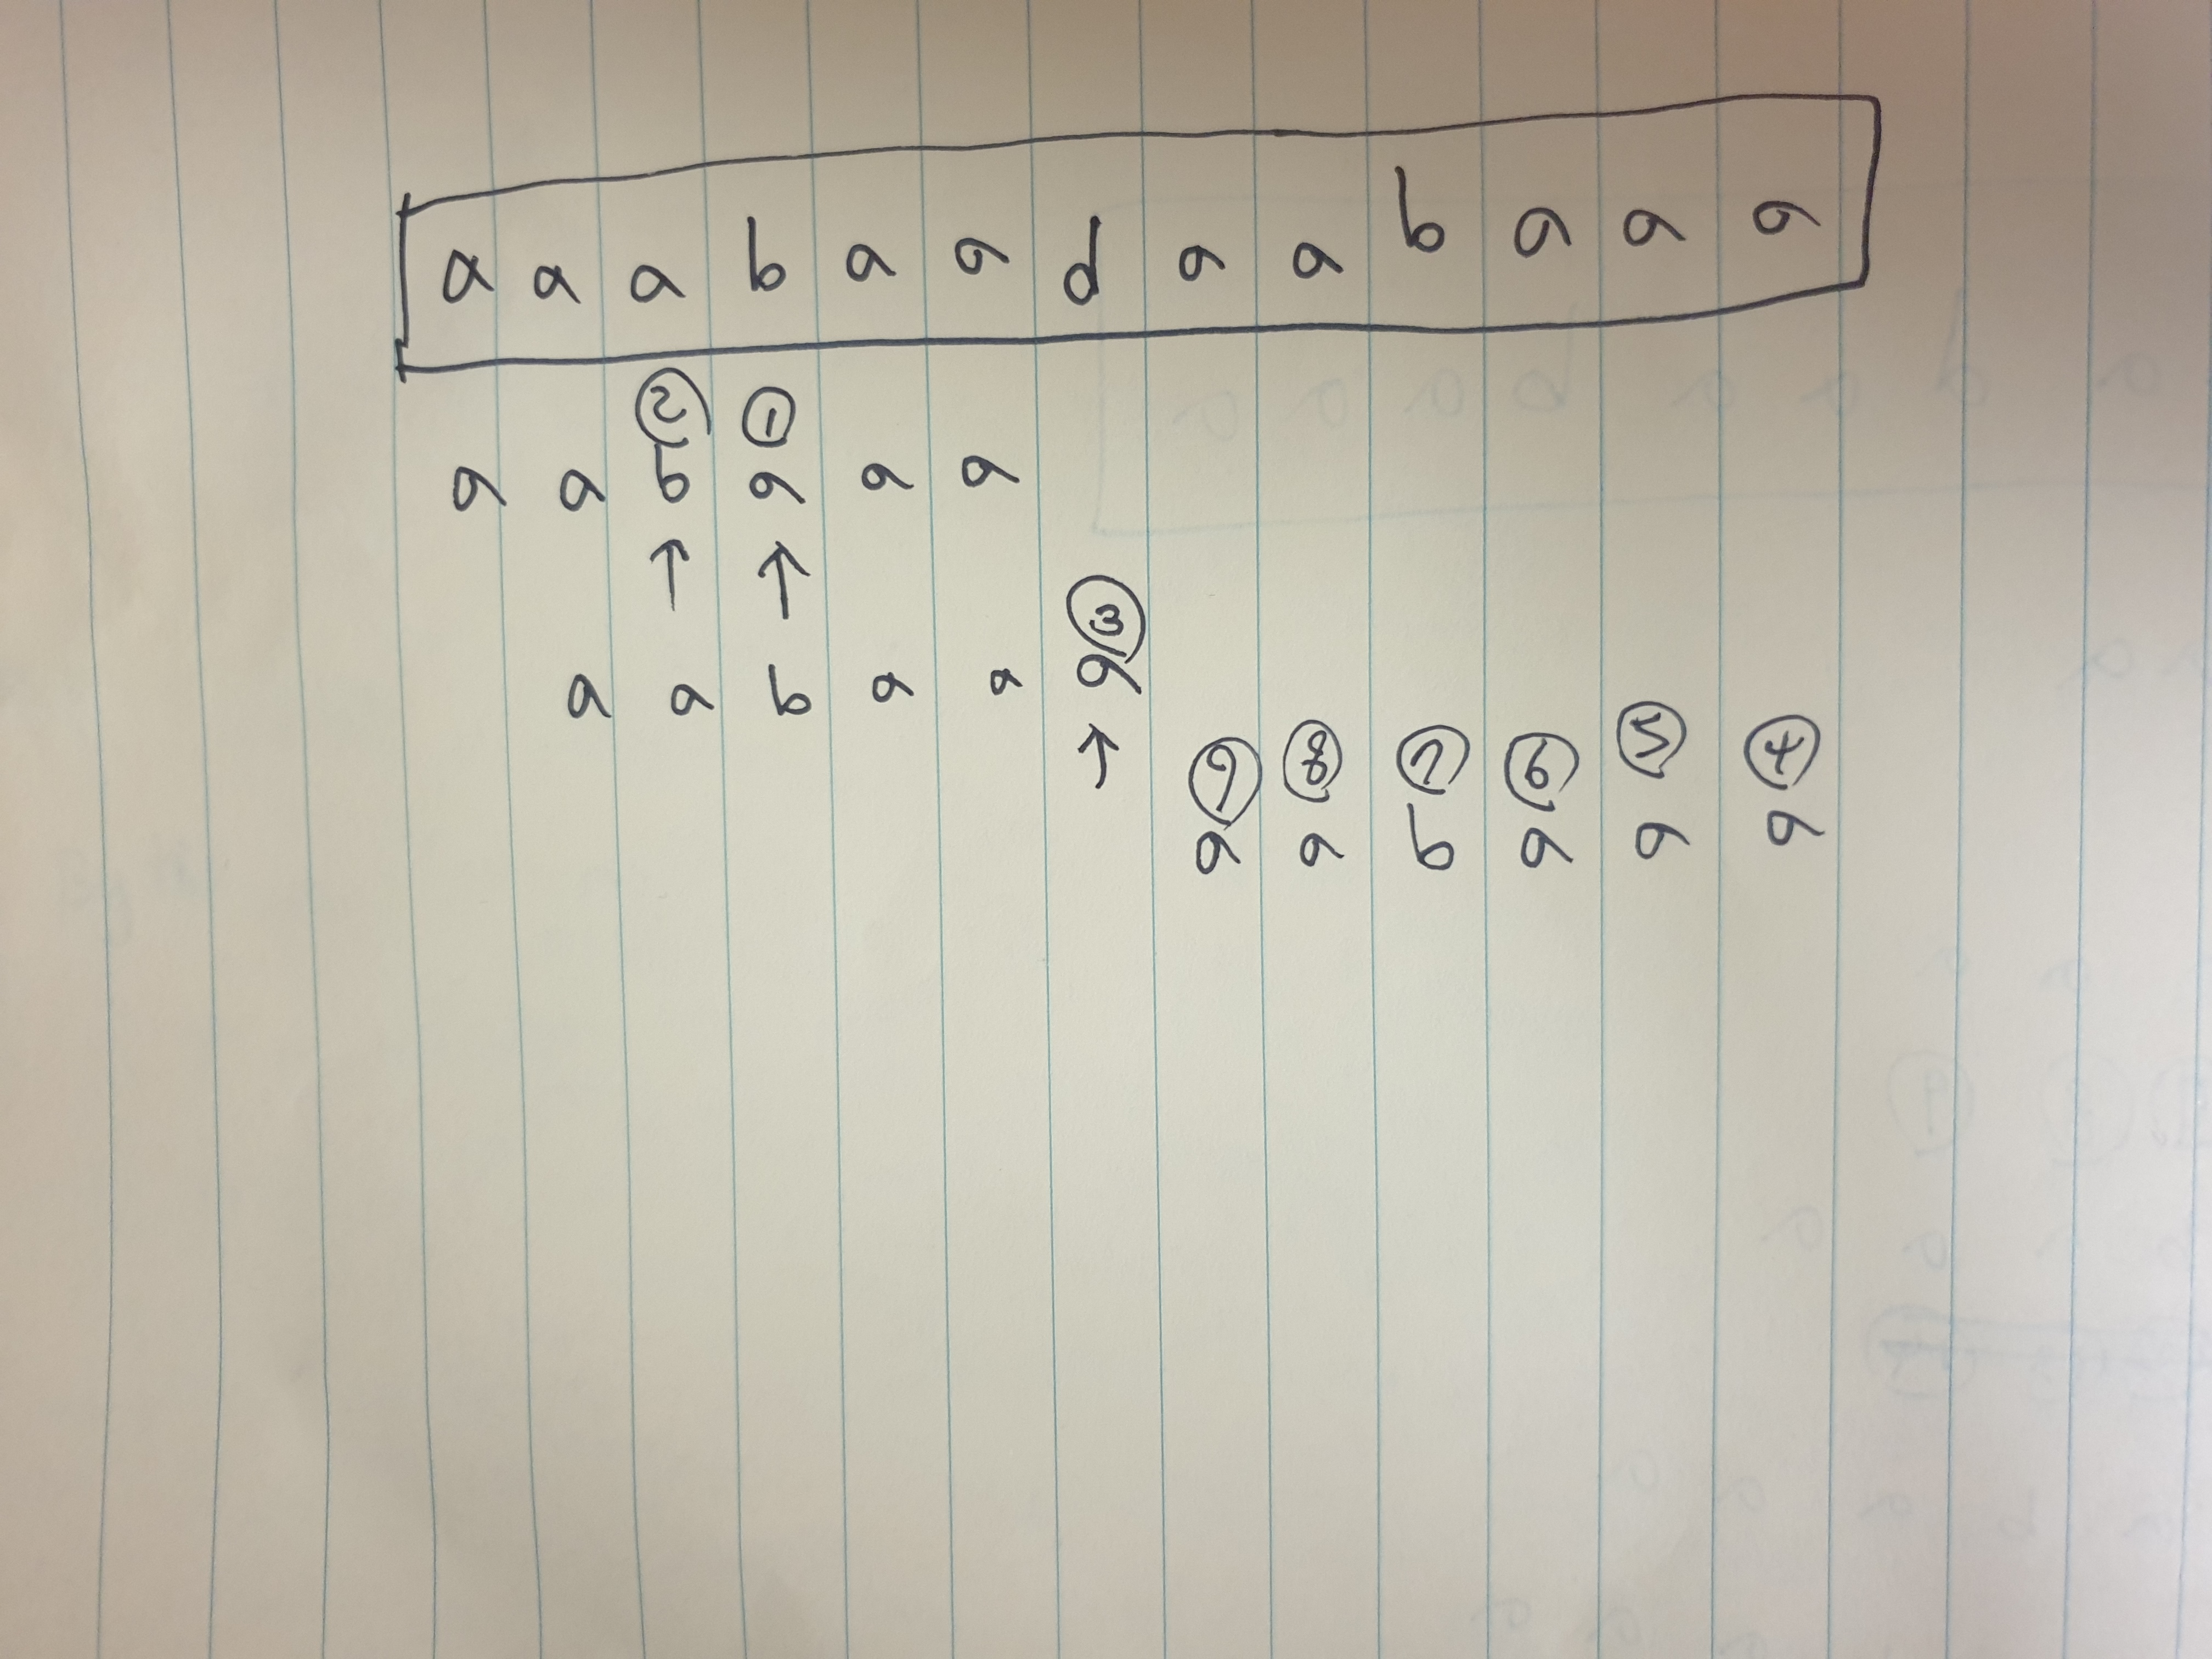 a a a b a a d a a b a a a
② ①
a a b a a a
↑ ↑
③
a a b a a a
↑
⑨ ⑧ ⑦ ⑥ ⑤ ④
a a b a a a